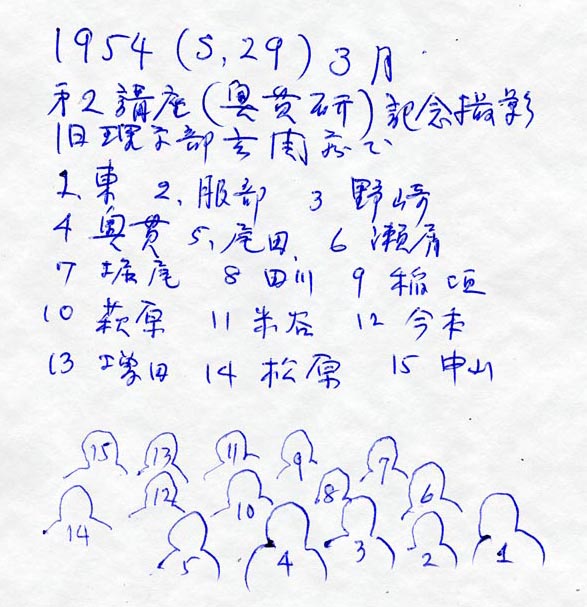 1954 (S,29) 3月
第2講座(奥貫研)記念撮影
旧 部玄関
1、東 2、服部 3 野崎
4 奥貫 5、尾田、 6 瀬尾
7 堀尾 8 田川 9 稲垣
10 萩原 11 米谷 12 今本
13 増田 14 松原 15 中山
15 13 11 9 7
14 12 10 8 6
5 4 3 2 1